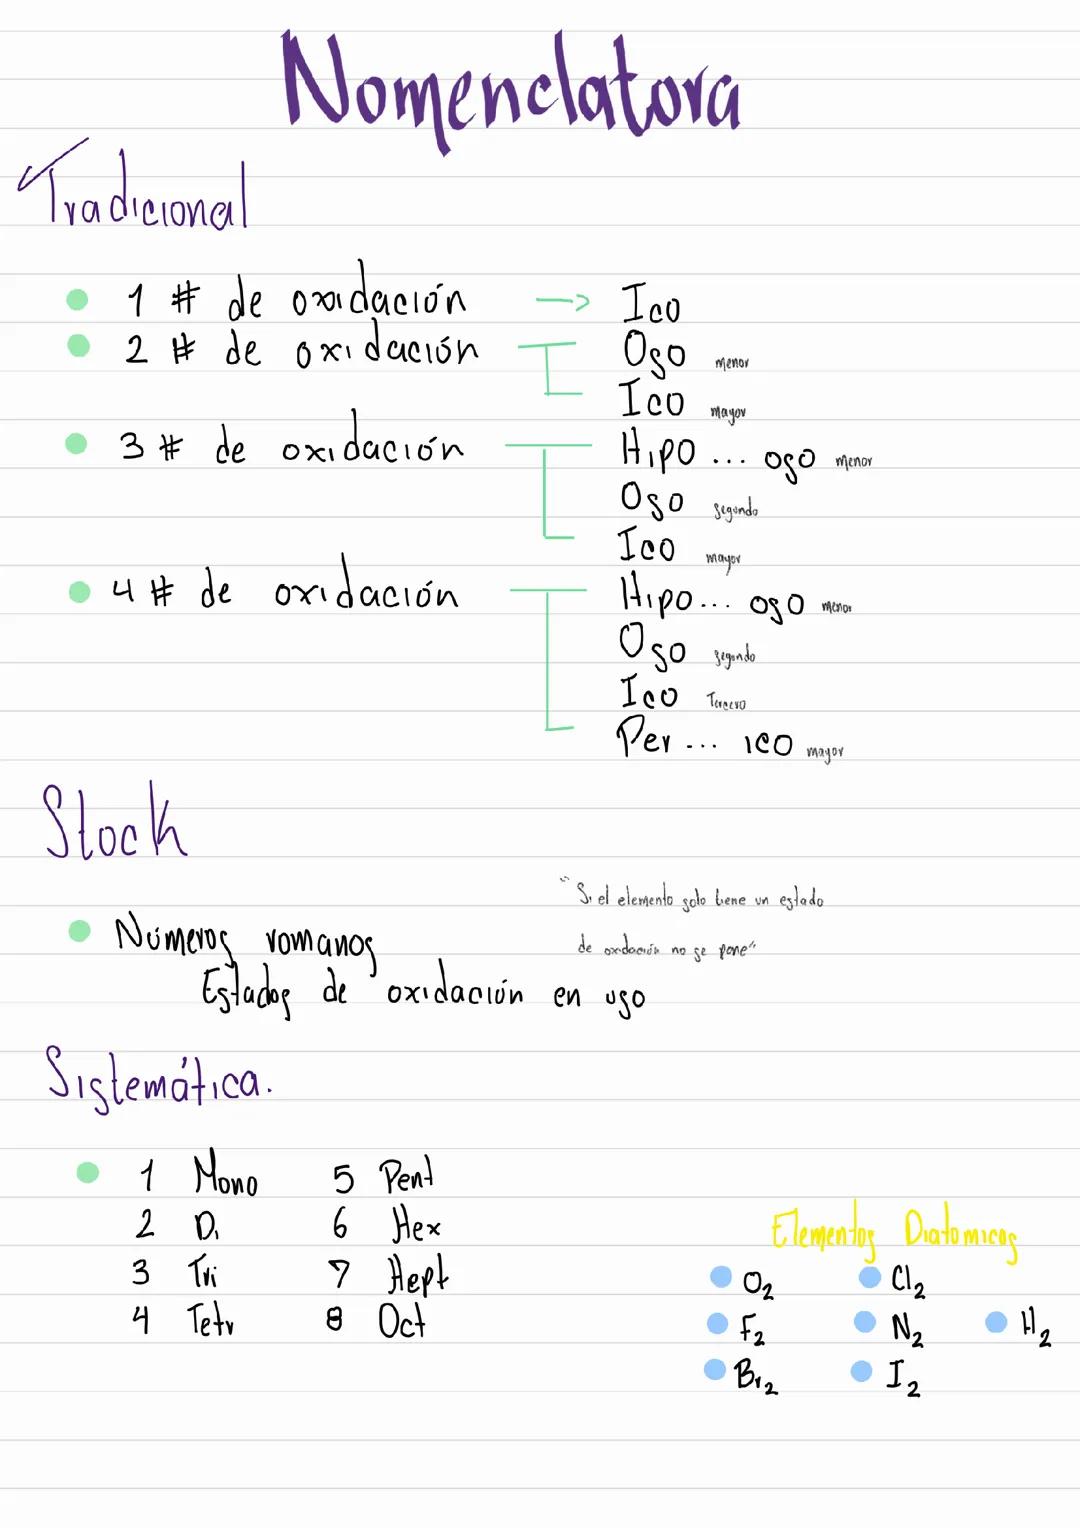 Nomenclatura
Tradicional
1 # de oxidación -> Ico
2 # de oxidación Oso menor
Ico mayor
3 # de oxidación Hipo ... oso menor
Oso segundo
Ico mayor
4 # de oxidación Hipo... oso menor
Oso segundo
Ico Tercero
Per ... ico mayor
Stock
"Si el elemento solo tiene un estado
de oxidación no se pone"
Números romanos
Estados de oxidación en uso
Sistemática.
1 Mono 5 Pent
2 Di 6 Hex
3 Tri 7 Hept
4 Tetr 8 Oct
Elementos Diatomicos
O2 Cl2
F2 N2 H2
Br2 I2